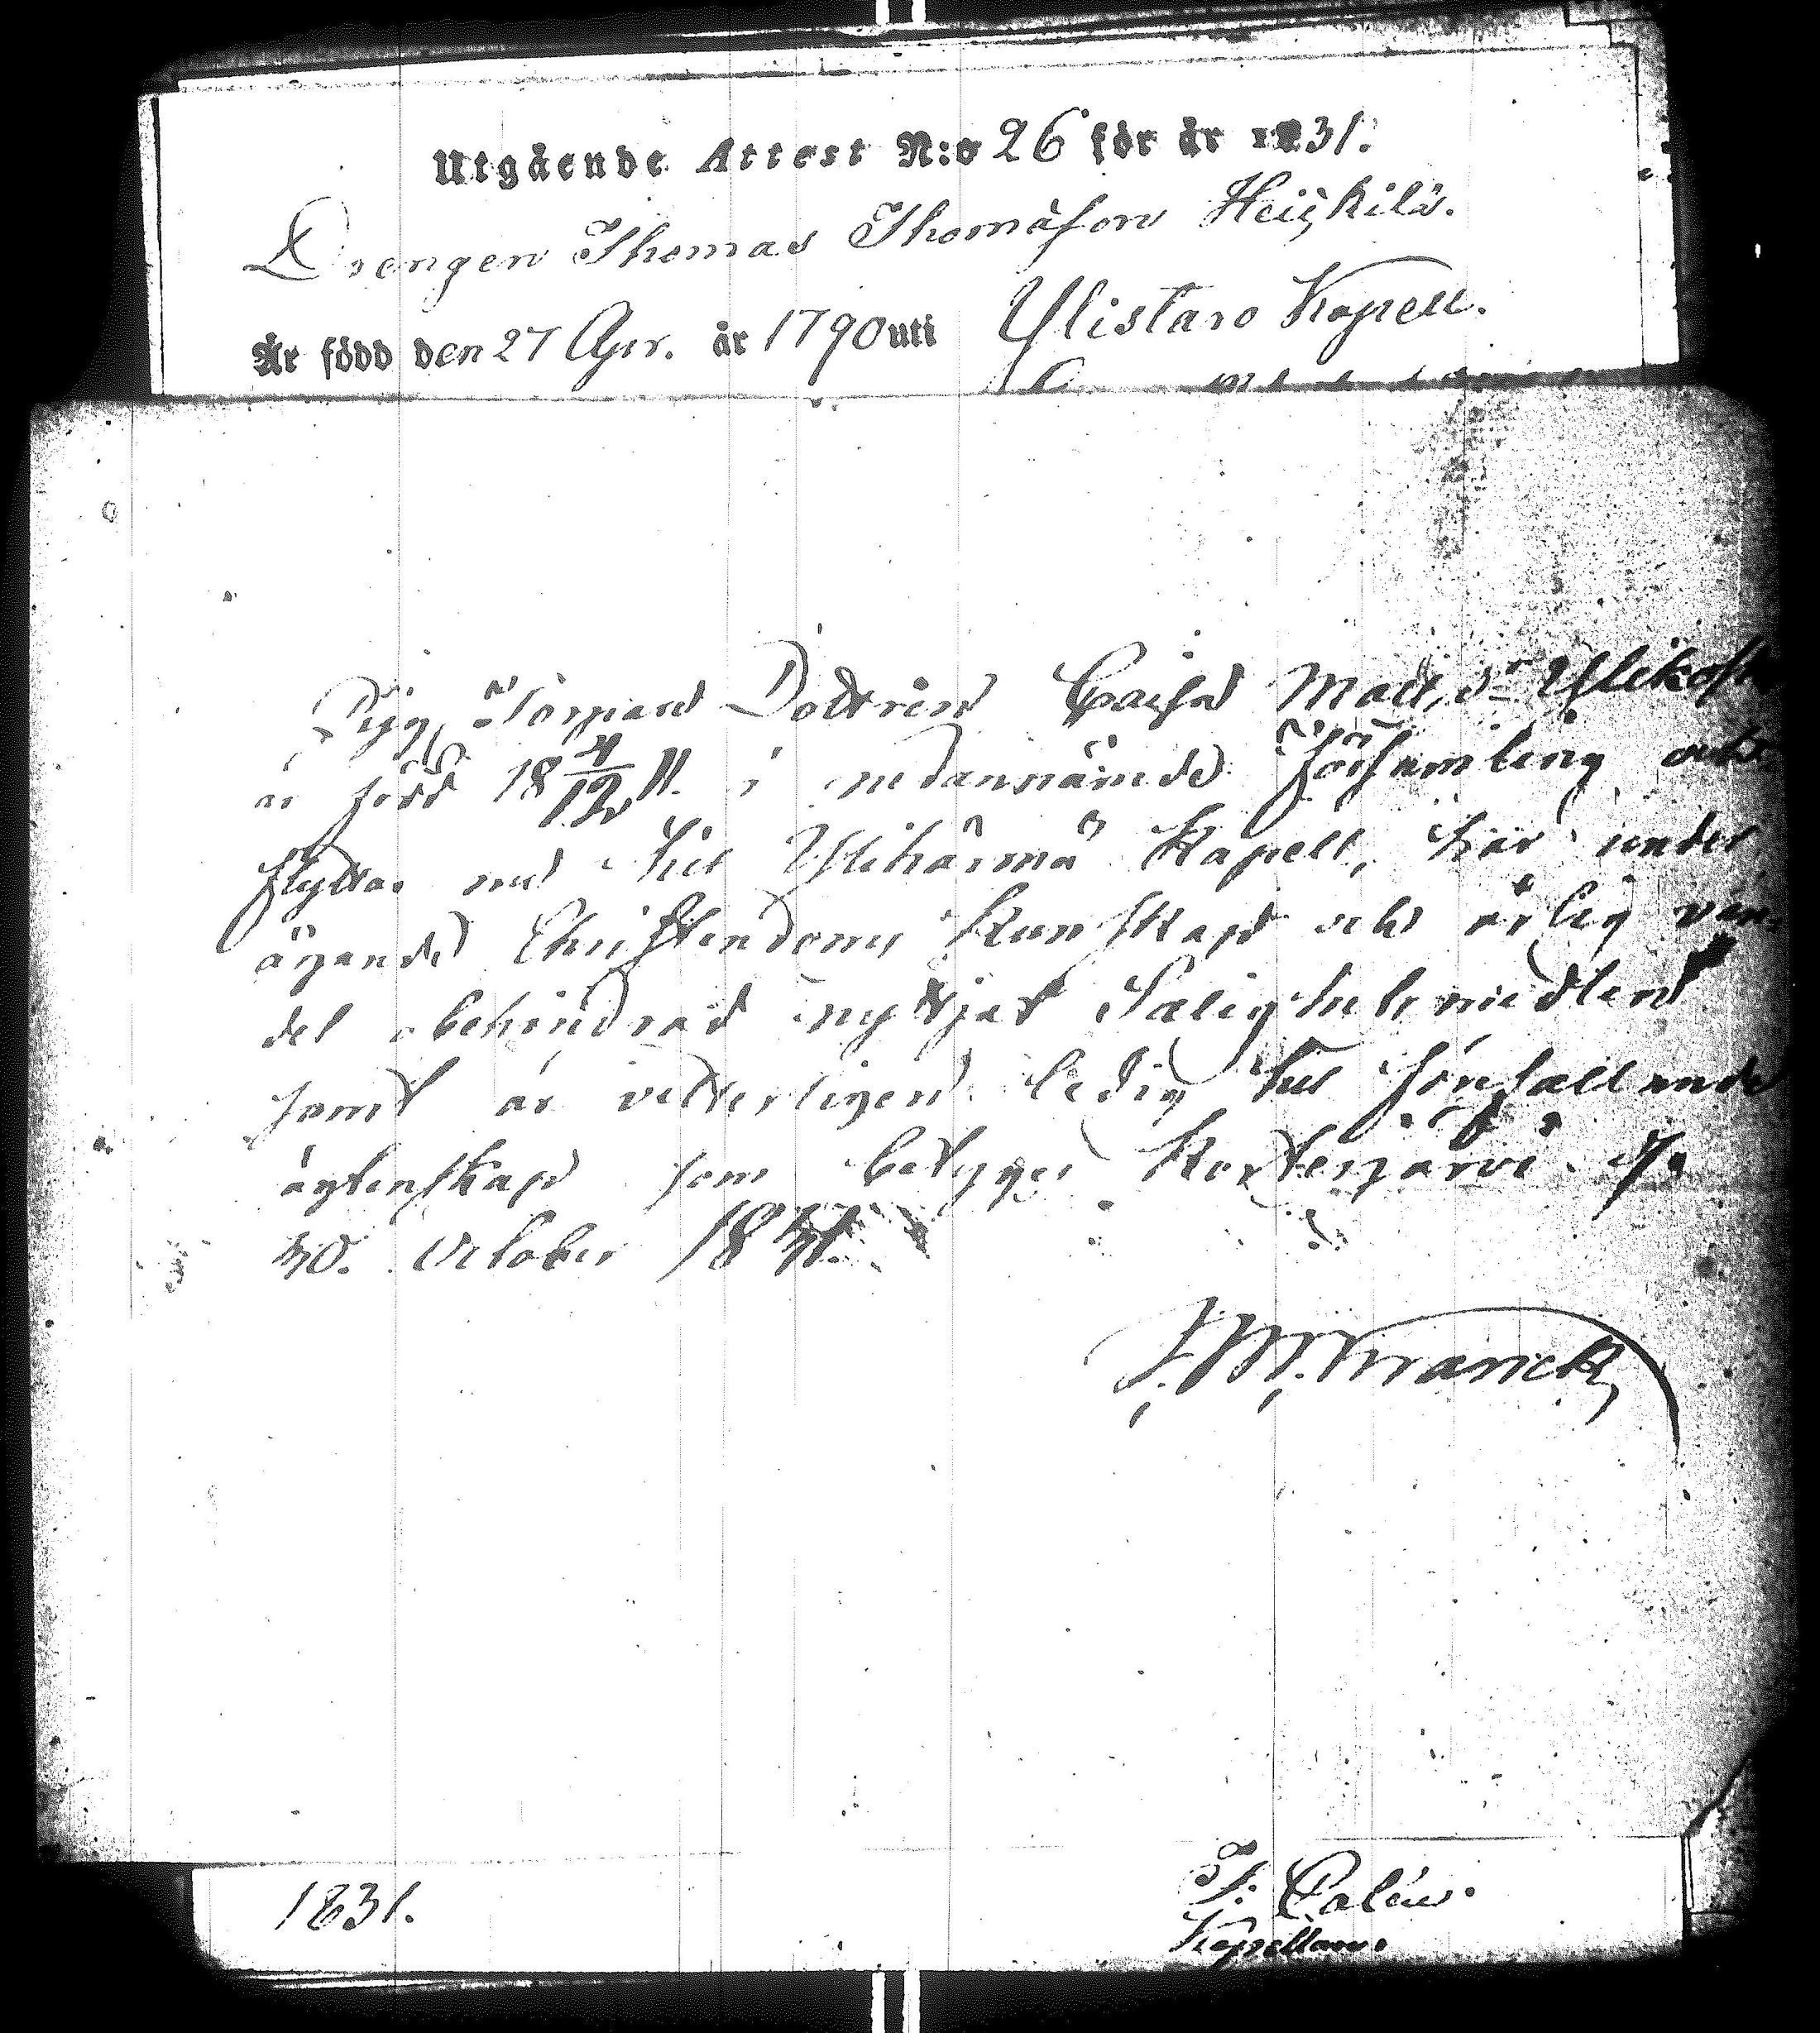 Utgående Attest N:o 26 för år 1831.
Drengen Thomas Thomasson Heickilä.
Är född den 27 Apr. år 1790 uti Ylistaro Kapell.
Pig. Torpare Dottren Caisa Matts dr Ylikos
är född 18 4/12 11. i nedannämnde Församling och
flyttar nu till Ylihärmä Kapell, har under
ägande Christendoms Kunskap och ärlig van
del obehindrad nyttjat Salighetsmedlen
samt är vetterligen ledig till förefallande
ägtenskap som betyger Kortesjärvi d.
30. October 1831.
J. M. Kranck
1831.
J. Calén.
Kapellan.